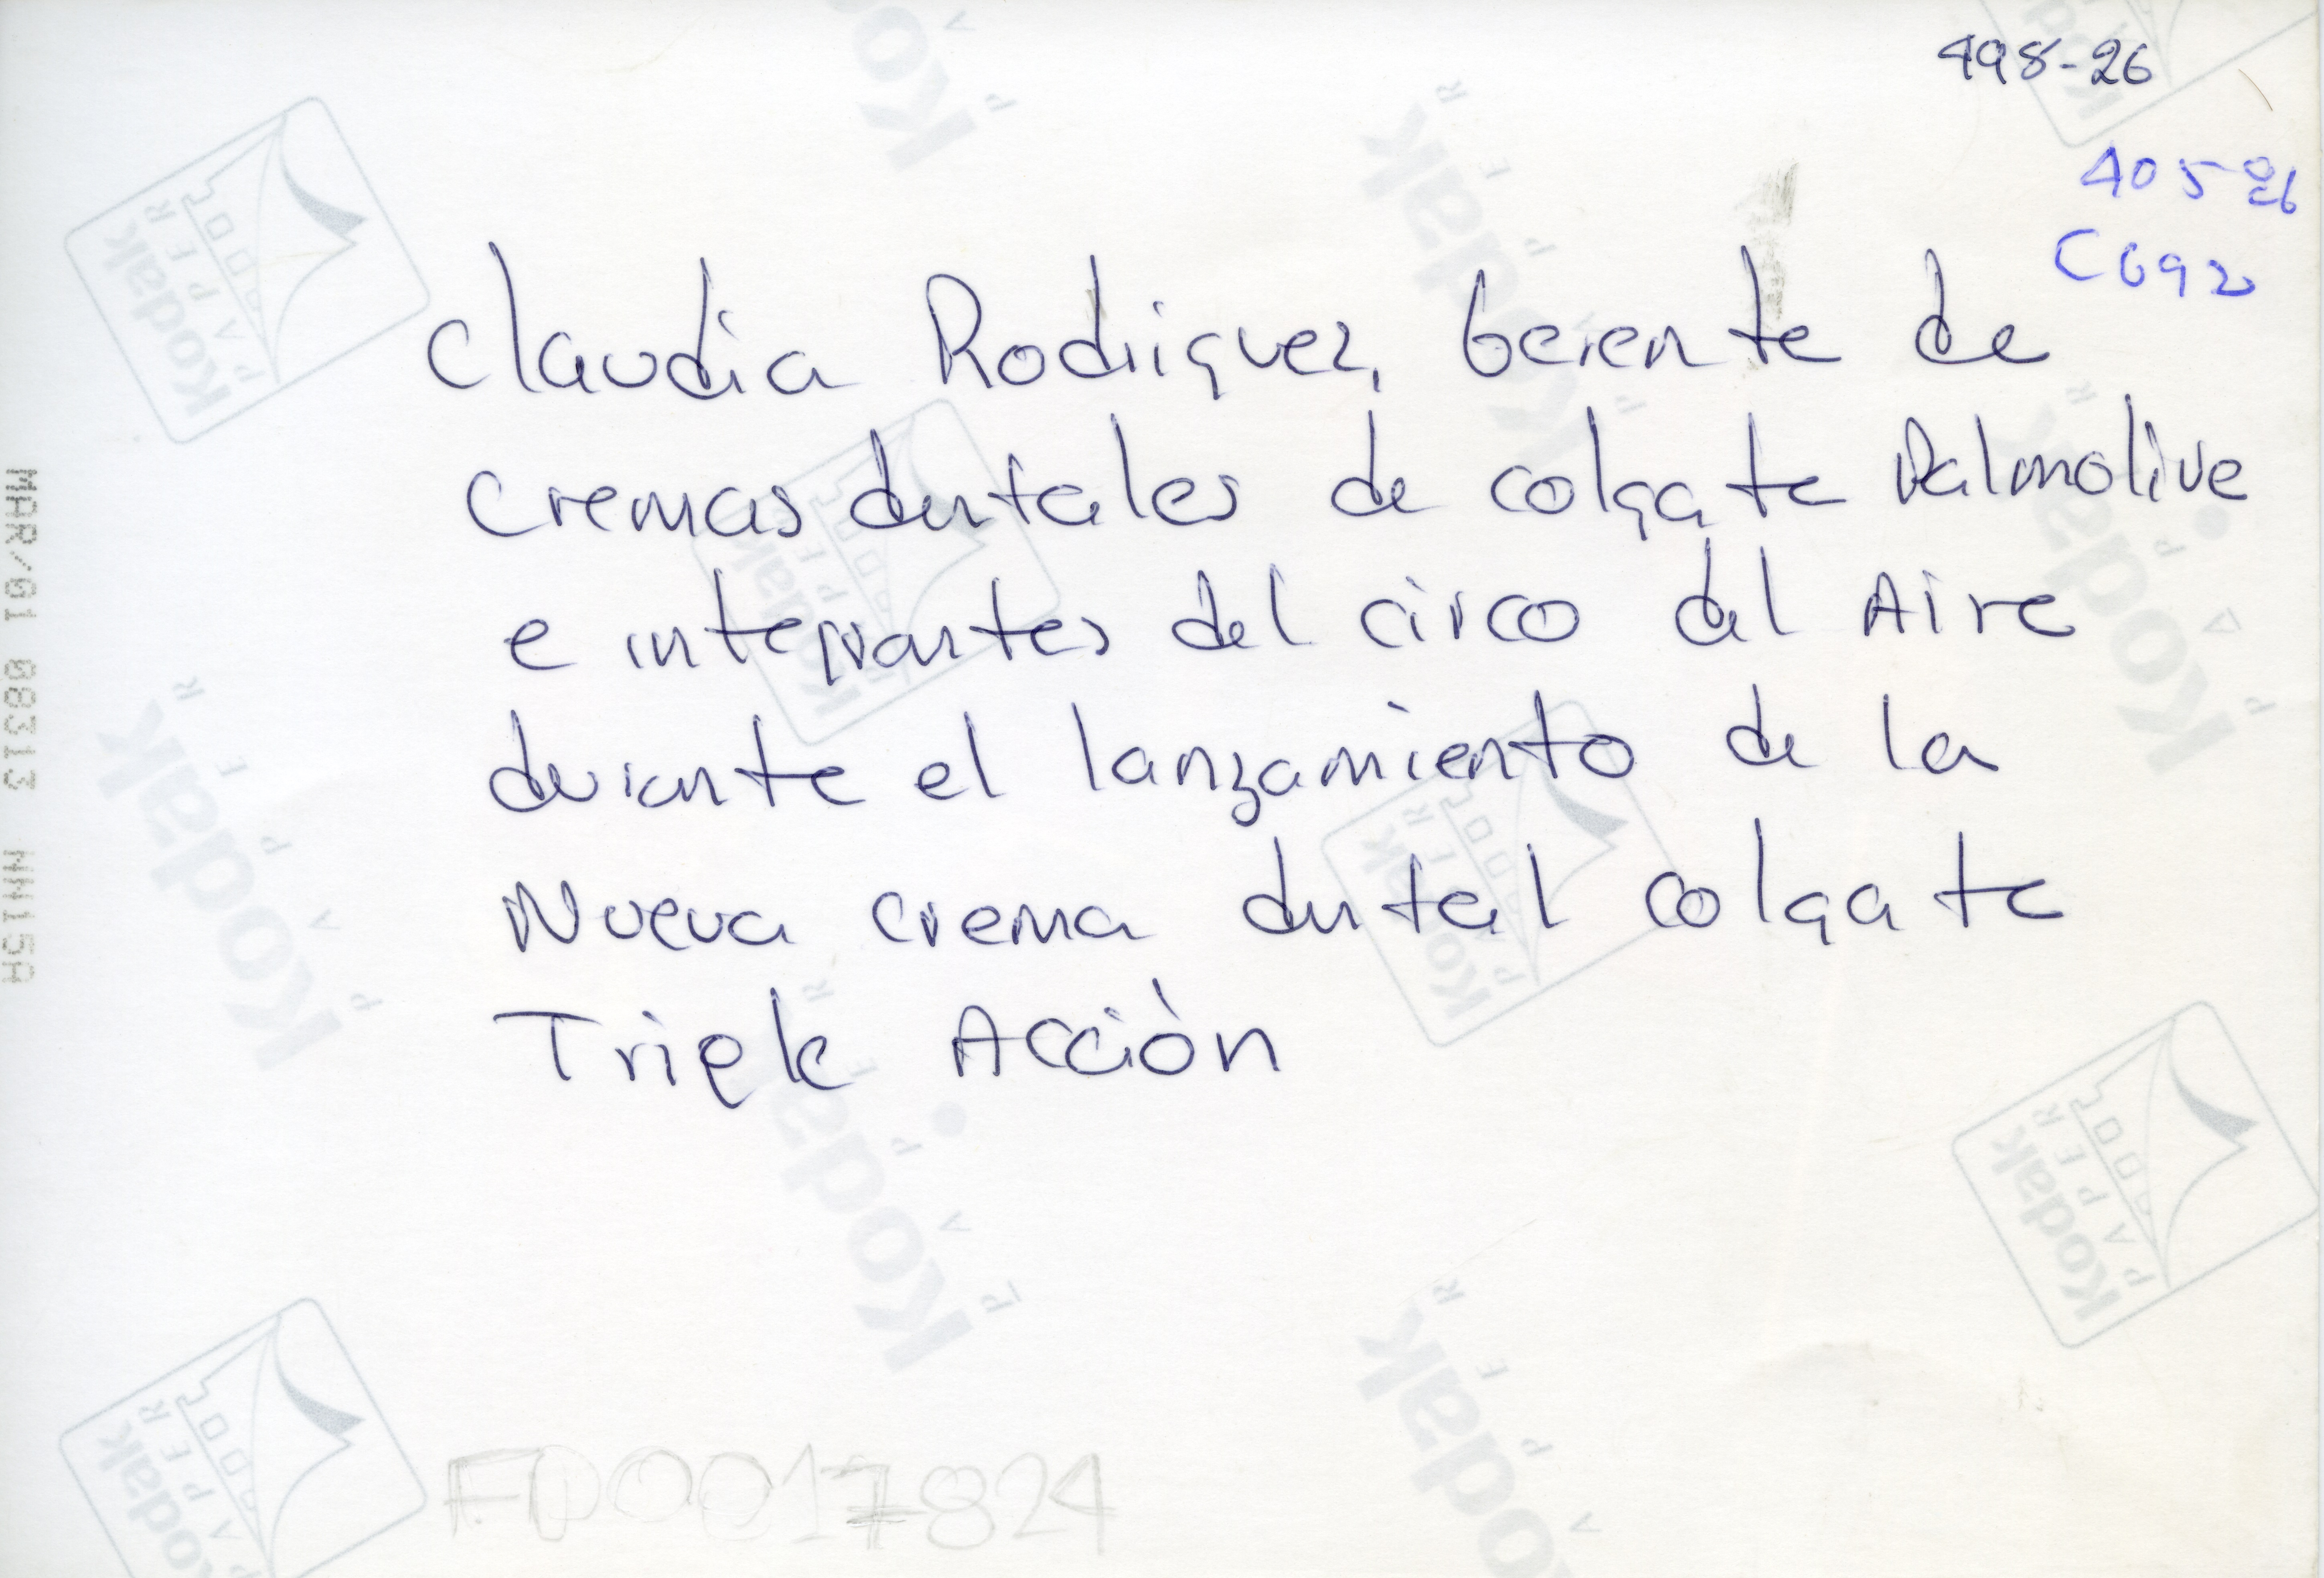 498-26
405-26
C692
Claudia Rodriguez, Gerente de
cremas dentales de colgate Palmolive
e integrantes del circo del Aire
durante el lanzamiento de la
Nueva crema dental colgate
Triple Acciòn
FD0017824
MAR/01 08313 NN15A
Kodak
PAPER